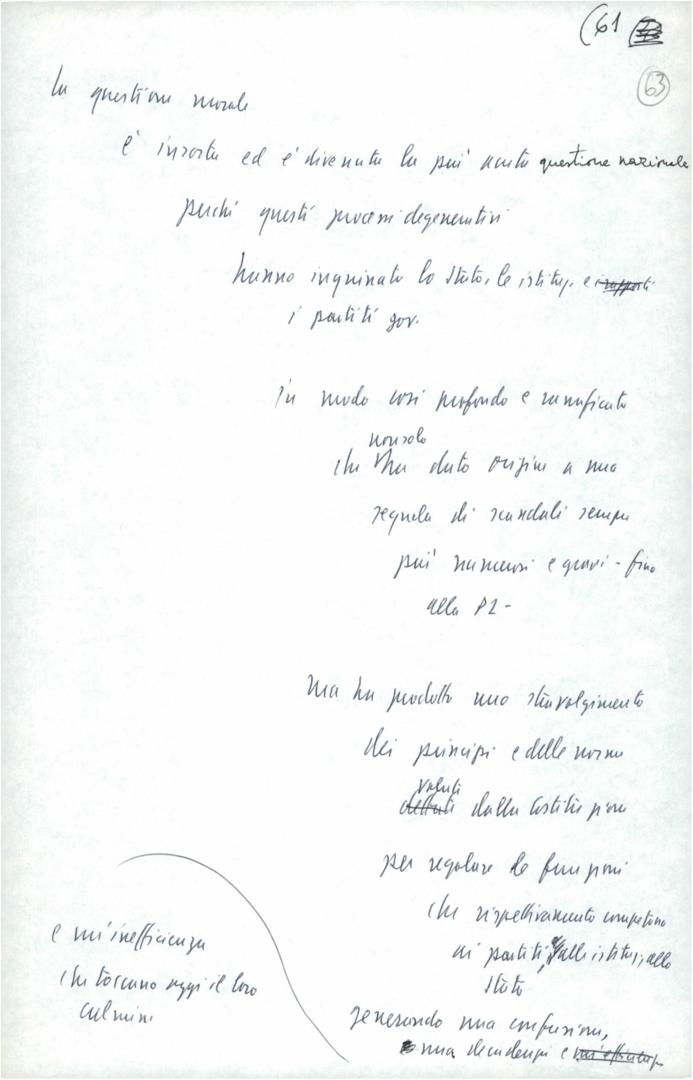 (61
63
La questione morale
è insorta ed è divenuta la più acuta questione nazionale
perché questi processi degenerativi
hanno inquinato lo Stato, le istituz. e i rapporti
i partiti gov.
in modo così profondo e ramificato
non solo
che ha dato origine a una
sequela di scandali sempre
più numerosi e gravi - fino
alla P2 -
ma ha prodotto uno stravolgimento
dei principi e delle norme
voluti
dettati dalla Costituzione
per regolare le funzioni
che rispettivamente competono
ai partiti, alle istituz., allo
Stato
generando una confusione,
una decadenza e un'inefficienza
e un'inefficienza
che toccano oggi il loro
culmine